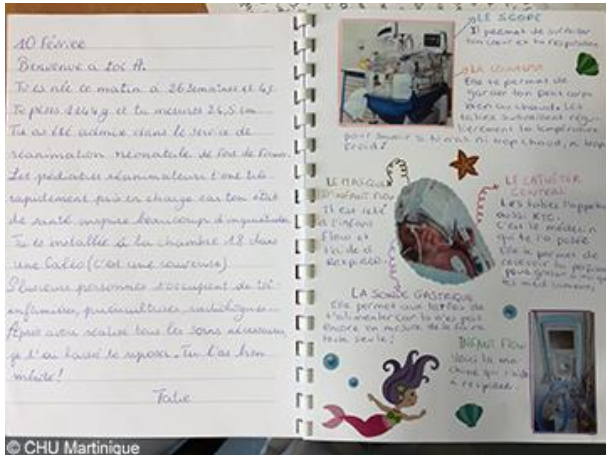 10 Février
Bienvenue à toi A.
Tu es née ce matin à 26 semaines et 4j
Tu pèses g et tu mesures cm
Tu as été admise dans le service de
réanimation néonatale de Fort de France.
Les pédiatres réanimateurs t'ont très
rapidement pris en charge car ton état
de santé inspire beaucoup d'inquiétudes.
Tu es installée à la chambre 18 dans
une Caléo (c'est une couveuse)
Plusieurs personnes s'occupent de toi
infirmières, puéricultrices, radiologues...
Après avoir réalisé tous les soins nécessaires
je t'ai laissé te reposer. Tu l'as bien
mérité !
LE SCOPE
Il permet de surveiller
ton coeur et ta respiration
LA COUVEUSE
Elle te permet de
garder ton petit corps
bien au chaud. Les
taties surveillent régu-
lièrement la température
pour savoir si tu n'as ni trop chaud, ni trop
froid !
LE MASQUE
D'INFANT FLOW
Il est relié
à l'infant
Flow et
t'aide à
respirer.
LE CATHÉTER
CENTRAL
Les taties l'appellent
aussi KTC.
C'est le médecin
qui te l'a posé.
Elle te permet de
recevoir la
pour et
les médicaments.
LA SONDE GASTRIQUE
Elle permet aux taties de
t'alimenter car tu n'es pas
encore en mesure de le faire
toute seule !
INFANT FLOW
Voici la ma-
chine qui t'aide
à respirer.
© CHU Martinique